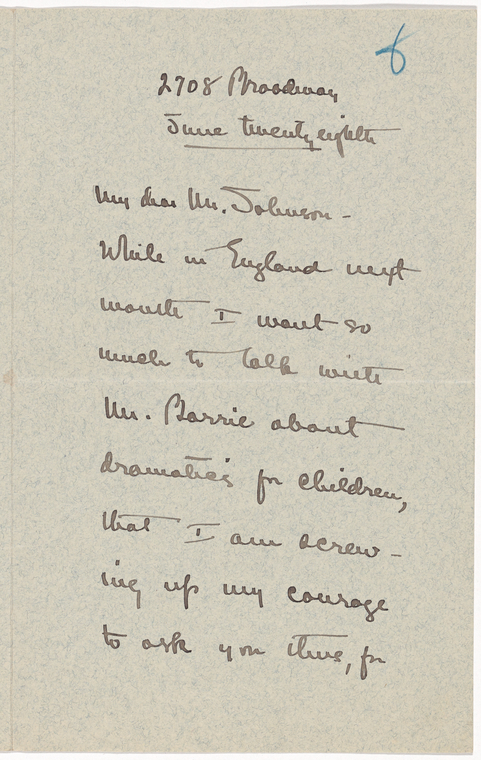 8
2708 Broadway
June twenty eighth
My dear Mr. Johnson -
While in England next
month I want so
much to talk with
Mr. Barrie about
dramatics for children,
that I am screw-
ing up my courage
to ask you thus, for